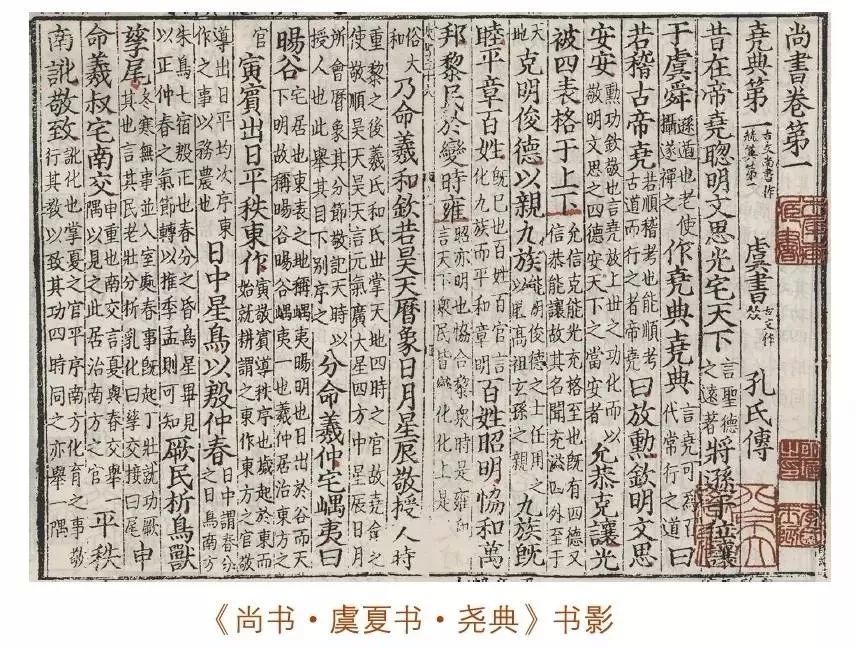 尚書卷第一
堯典第一 古文尚書作 虞書 古文作 孔氏傳
昔在帝堯聰明文思光宅天下 言聖德之遠著 將遜于位讓
于虞舜 遜遁也老使攝遂禪之 作堯典堯典 言堯可為百代常行之道 曰
若稽古帝堯 若順稽考也能順考古道而行之者帝堯 曰放勳欽明文思
安安 勳功欽敬也言堯放上世之功化而以敬明文思之四德安天下之當安者 允恭克讓光
被四表格于上下 允信克能光充格至也既有四德又信恭能讓故其名聞充溢四外至于
天地 克明俊德以親九族 能明俊德之士任用之以睦高祖玄孫之親 九族既
睦平章百姓 既已也百姓百官言化九族而平和章明 百姓昭明恊和萬
邦黎民於變時雍 昭亦明也協合黎衆時是雍和言天下衆民皆變化化上是
俗大和 乃命羲和欽若昊天曆象日月星辰敬授人時
重黎之後羲氏和氏世掌天地四時之官故堯命之使敬順昊天昊天言元氣廣大星四方中星辰日月
所會曆象其分節敬記天時以授人也此舉其目下別序之 分命羲仲宅嵎夷曰
暘谷 宅居也東表之地稱嵎夷暘明也日出於谷而天下明故稱暘谷暘谷嵎夷一也羲仲居治東方之
官 寅賓出日平秩東作 寅敬賓導秩序也歲起於東而始就耕謂之東作東方之官敬
導出日平均次序東作之事以務農也 日中星鳥以殷仲春 日中謂春分之日鳥南方
朱鳥七宿殷正也春分之昏鳥星畢見以正仲春之氣節轉以推季孟則可知 厥民析鳥獸
孳尾 冬寒無事並入室處春事既起丁壯就功厥其也言其民老壯分析乳化曰孳交接曰尾 申
命羲叔宅南交 申重也南交言夏與春交舉一隅以見之此居治南方之官 平秩
南訛敬致 訛化也掌夏之官平序南方化育之事敬行其敎以致其功四時同之亦舉一隅
《尚书·虞夏书·尧典》书影